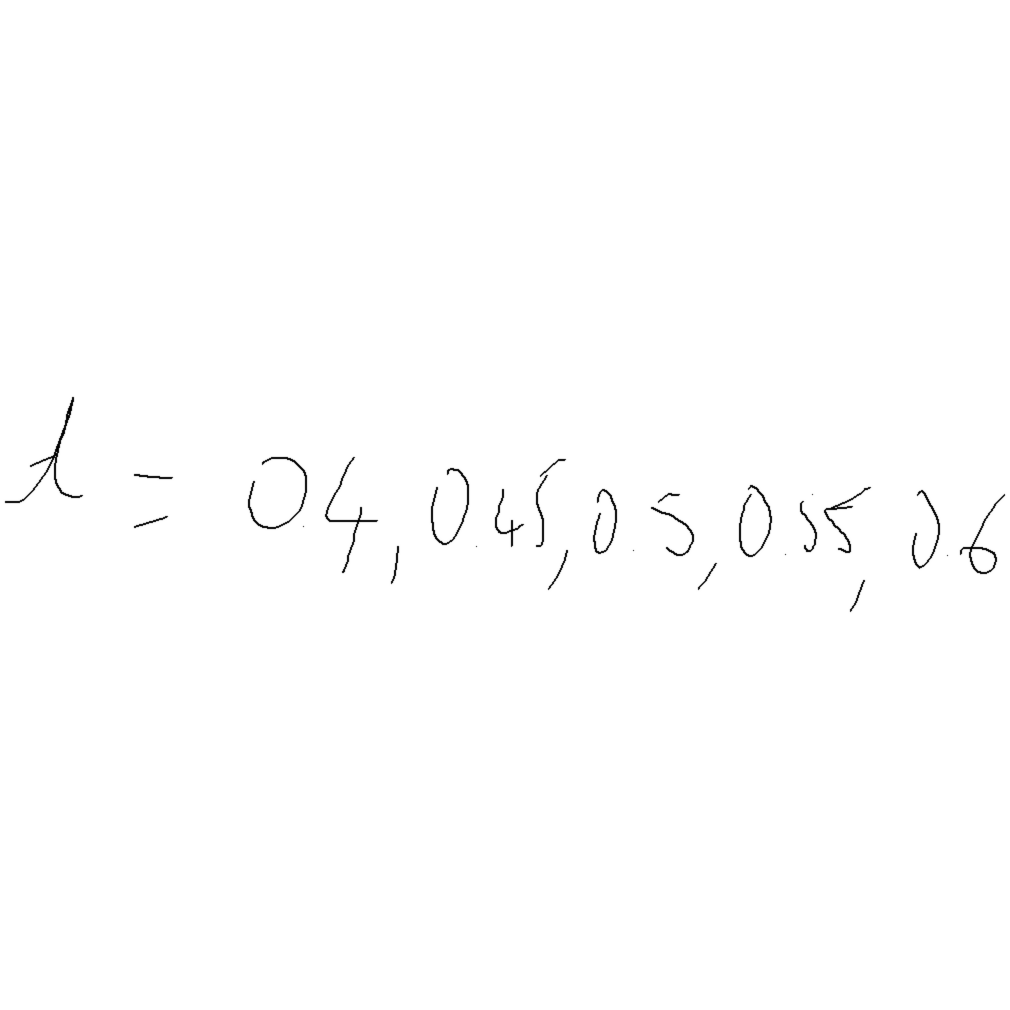 t = 0.4, 0.45, 0.5, 0.55, 0.6